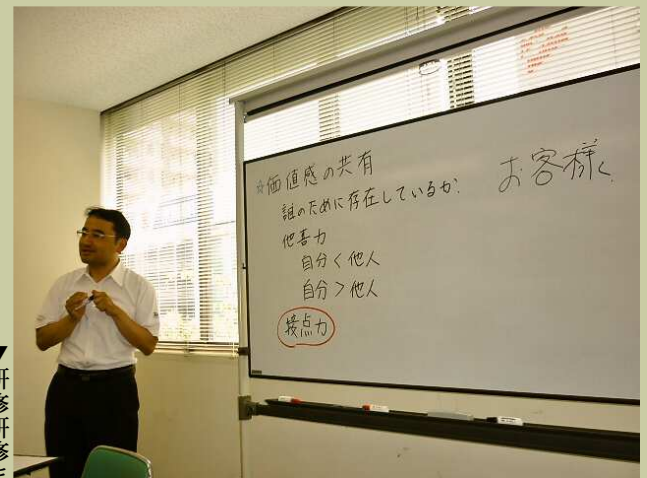 ☆価値感の共有
お客様
誰のために存在しているか.
他喜力
自分<他人
自分>他人
接点力
研修研修